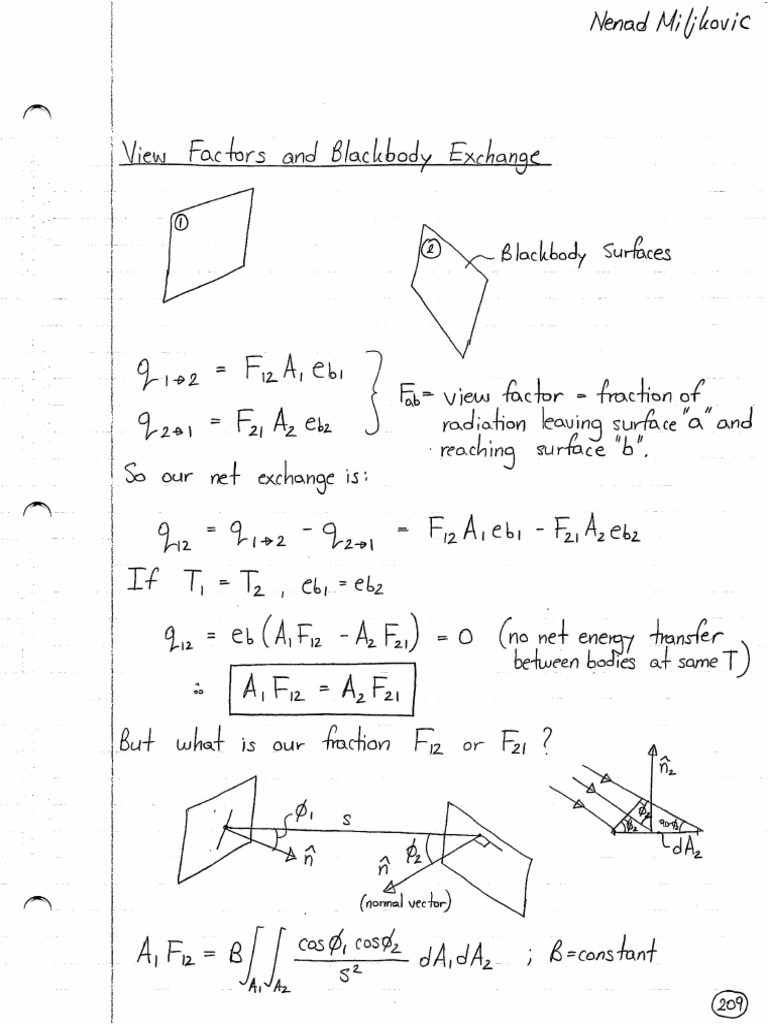 Nenad Miljkovic
View Factors and Blackbody Exchange
①
②
Blackbody Surfaces
q₁→₂ = F₁₂ A₁ eb₁
q₂→₁ = F₂₁ A₂ eb₂
Fab = view factor = fraction of
radiation leaving surface "a" and
reaching surface "b".
So our net exchange is:
q₁₂ = q₁→₂ - q₂→₁ = F₁₂ A₁ eb₁ - F₂₁ A₂ eb₂
If T₁ = T₂ , eb₁ = eb₂
q₁₂ = eb (A₁F₁₂ - A₂F₂₁) = 0 (no net energy transfer
between bodies at same T)
∴ A₁F₁₂ = A₂F₂₁
But what is our fraction F₁₂ or F₂₁ ?
ϕ₁
s
n̂
ϕ₂
n̂
(normal vector)
n̂₂
ϕ₂
ϕ₂
90-ϕ₂
dA₂
A₁F₁₂ = B ∫A₁ ∫A₂ cosϕ₁ cosϕ₂ / s² dA₁ dA₂ ; B = constant
209